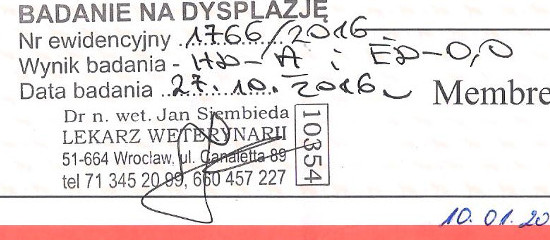 BADANIE NA DYSPLAZJĘ
Nr ewidencyjny ..1766/2016
Wynik badania - HD-A i ED-0,0
Data badania ..27.10.2016
Membre
Dr n. wet. Jan Siembieda
LEKARZ WETERYNARII
51-664 Wrocław, ul. Canaletta 89
tel 71 345 20 99, 660 457 227
10354
10.01.20